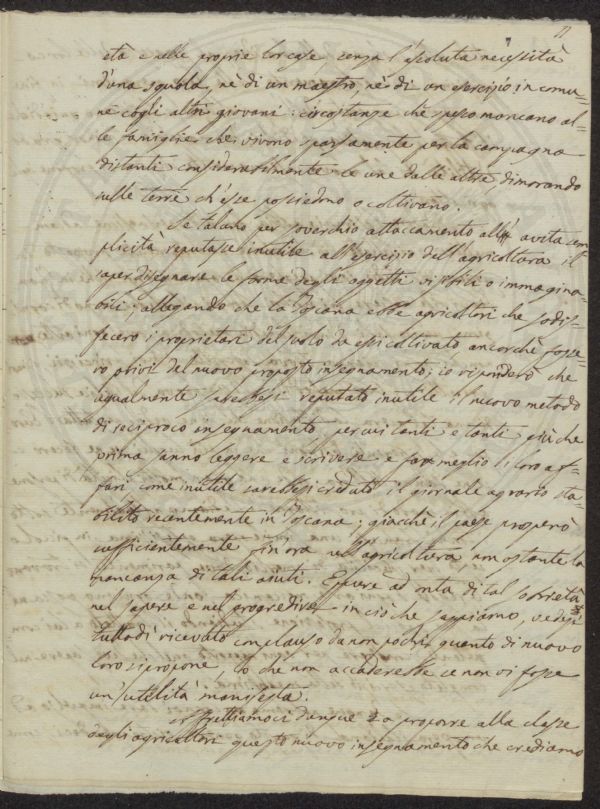 11
età e nelle proprie lor case, senza l'assoluta necessità
d'una squola, nè di un maestro, nè di un esercizio in comu-
ne cogli altri giovani: circostanze che spesso mancano al-
le famiglie che vivono sparsamente per la campagna
distanti considerabilmente le une dalle altre dimorando
sulle terre ch'esse possiedono o coltivano.
Se taluno per soverchio attaccamento all' avita sem
plicità reputasse inutile all'esercizio dell'agricoltura il
saper disegnare le forme degli oggetti visibili o immagina-
bili; allegando che la Toscana ebbe agricoltori che sodis-
fecero i proprietari del suolo da essi coltivato ancorchè fosse-
ro privi del nuovo proposto insegnamento; io risponderò che
egualmente sarebbesi reputato inutile il nuovo metodo
di reciproco insegnamento per cui tanti e tanti più che
prima sanno leggere e scrivere e far meglio i loro af-
fari come inutile sarebbesi creduto il giornale agrario sta-
bilito recentemente in Toscana; giacchè il paese prosperò
sufficientemente fin'ora nell'agricoltura non ostante la
mancanza di tali aiuti. Eppure ad onta di tal sobrietà
nel sapere e nel progredire in ciò che sappiamo, vedesi
tuttodì ricevuto con plauso da non pochi quanto di nuovo
loro si propone, lo che non accaderebbe se non vi fosse
un'utilità manifesta.
Affrettiamoci dunque a proporre alla classe
degli agricoltori questo nuovo insegnamento che crediamo